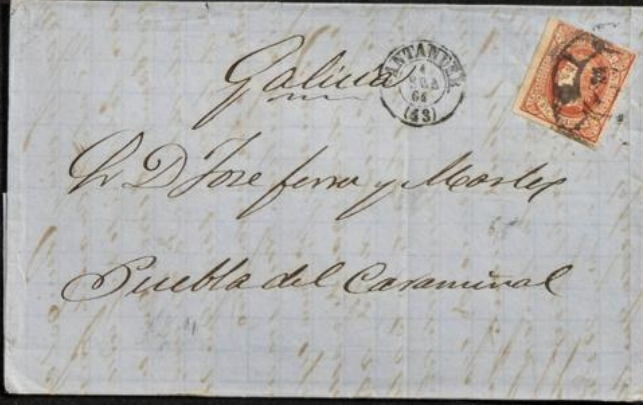 Galicia
SANTANDER
1
64
(43)
Sr D Jose ferrer y Mostes
Puebla del Caraminal